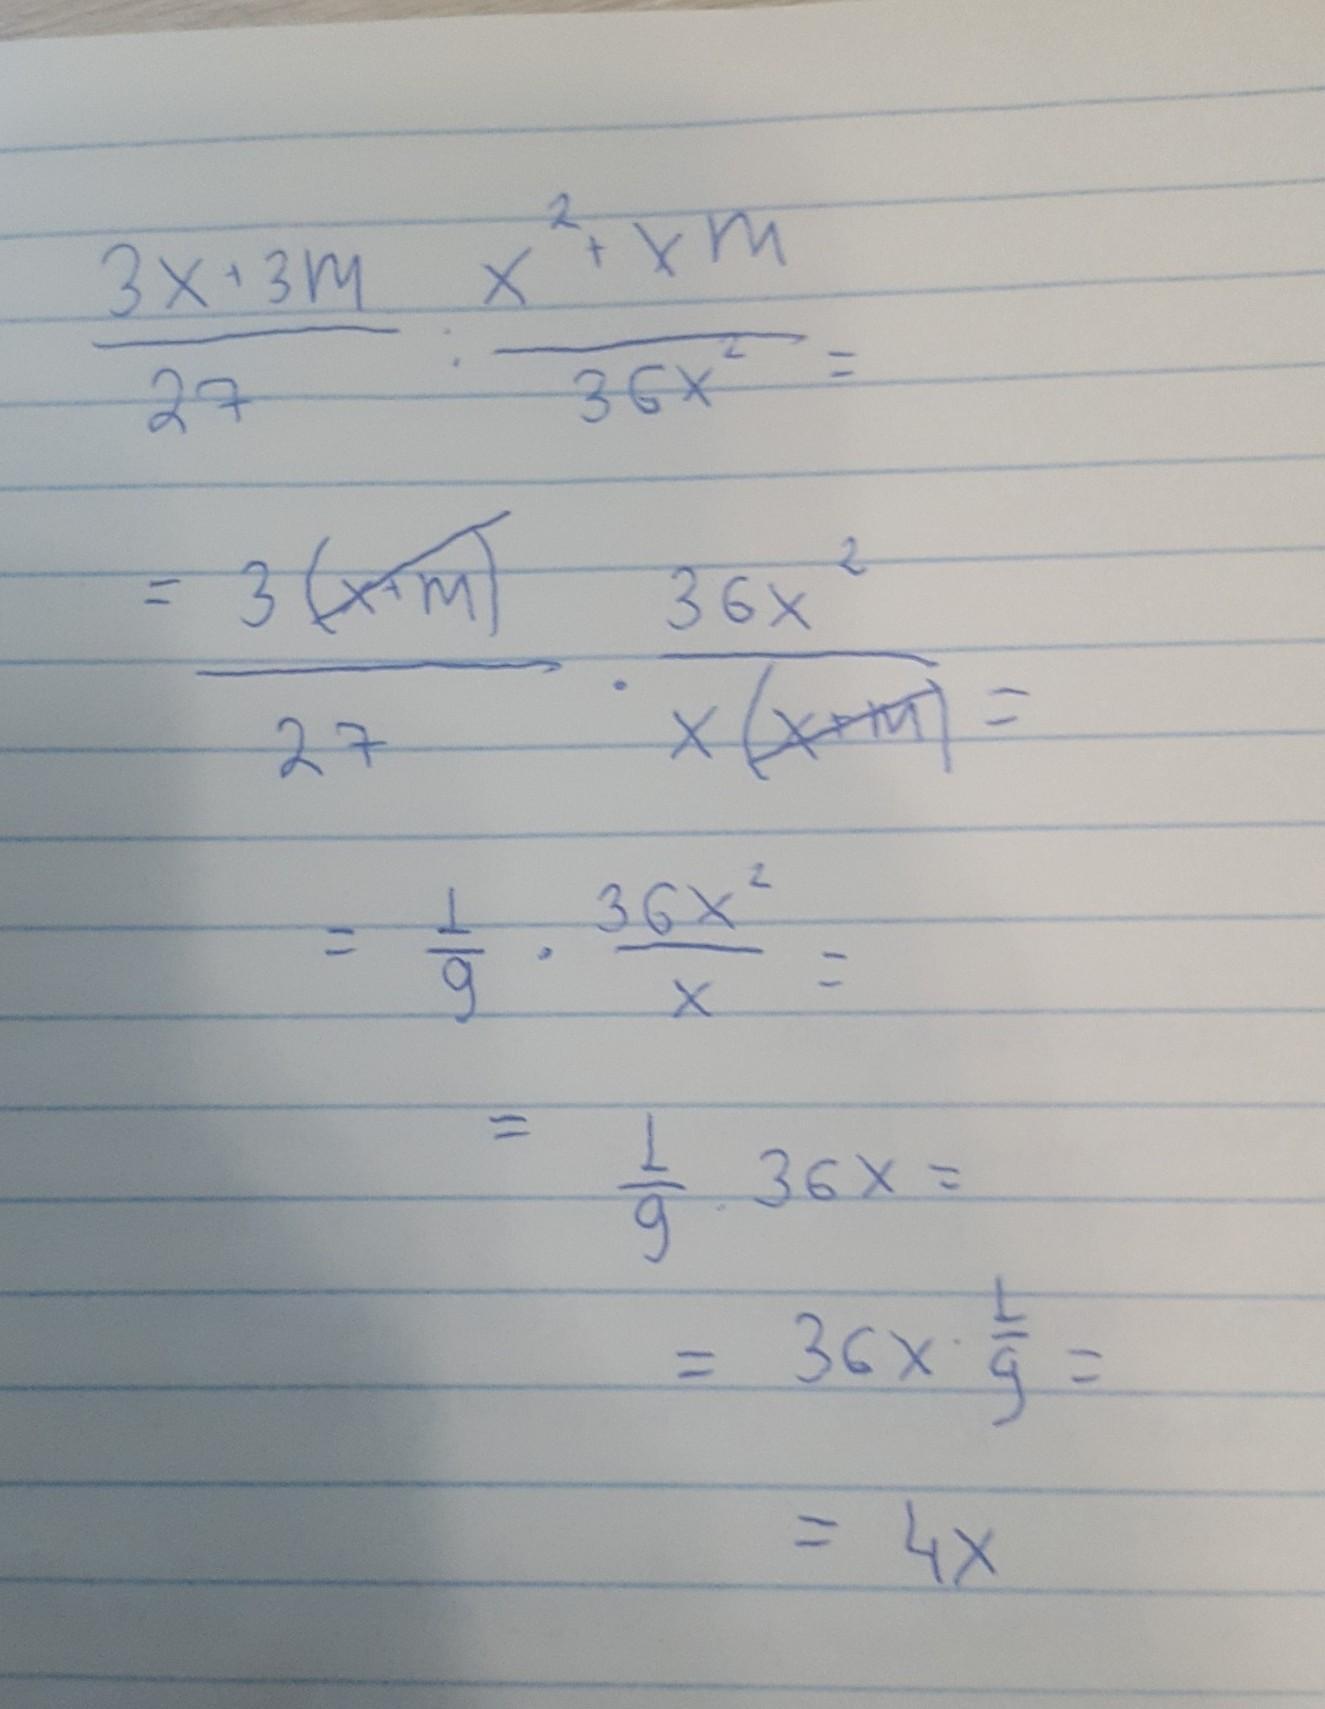 (3x+3m)/27 : (x²+xm)/(36x²) =
= 3(x+m)/27 · 36x²/(x(x+m)) =
= 1/9 · 36x²/x =
= 1/9 · 36x =
= 36x · 1/9 =
= 4x